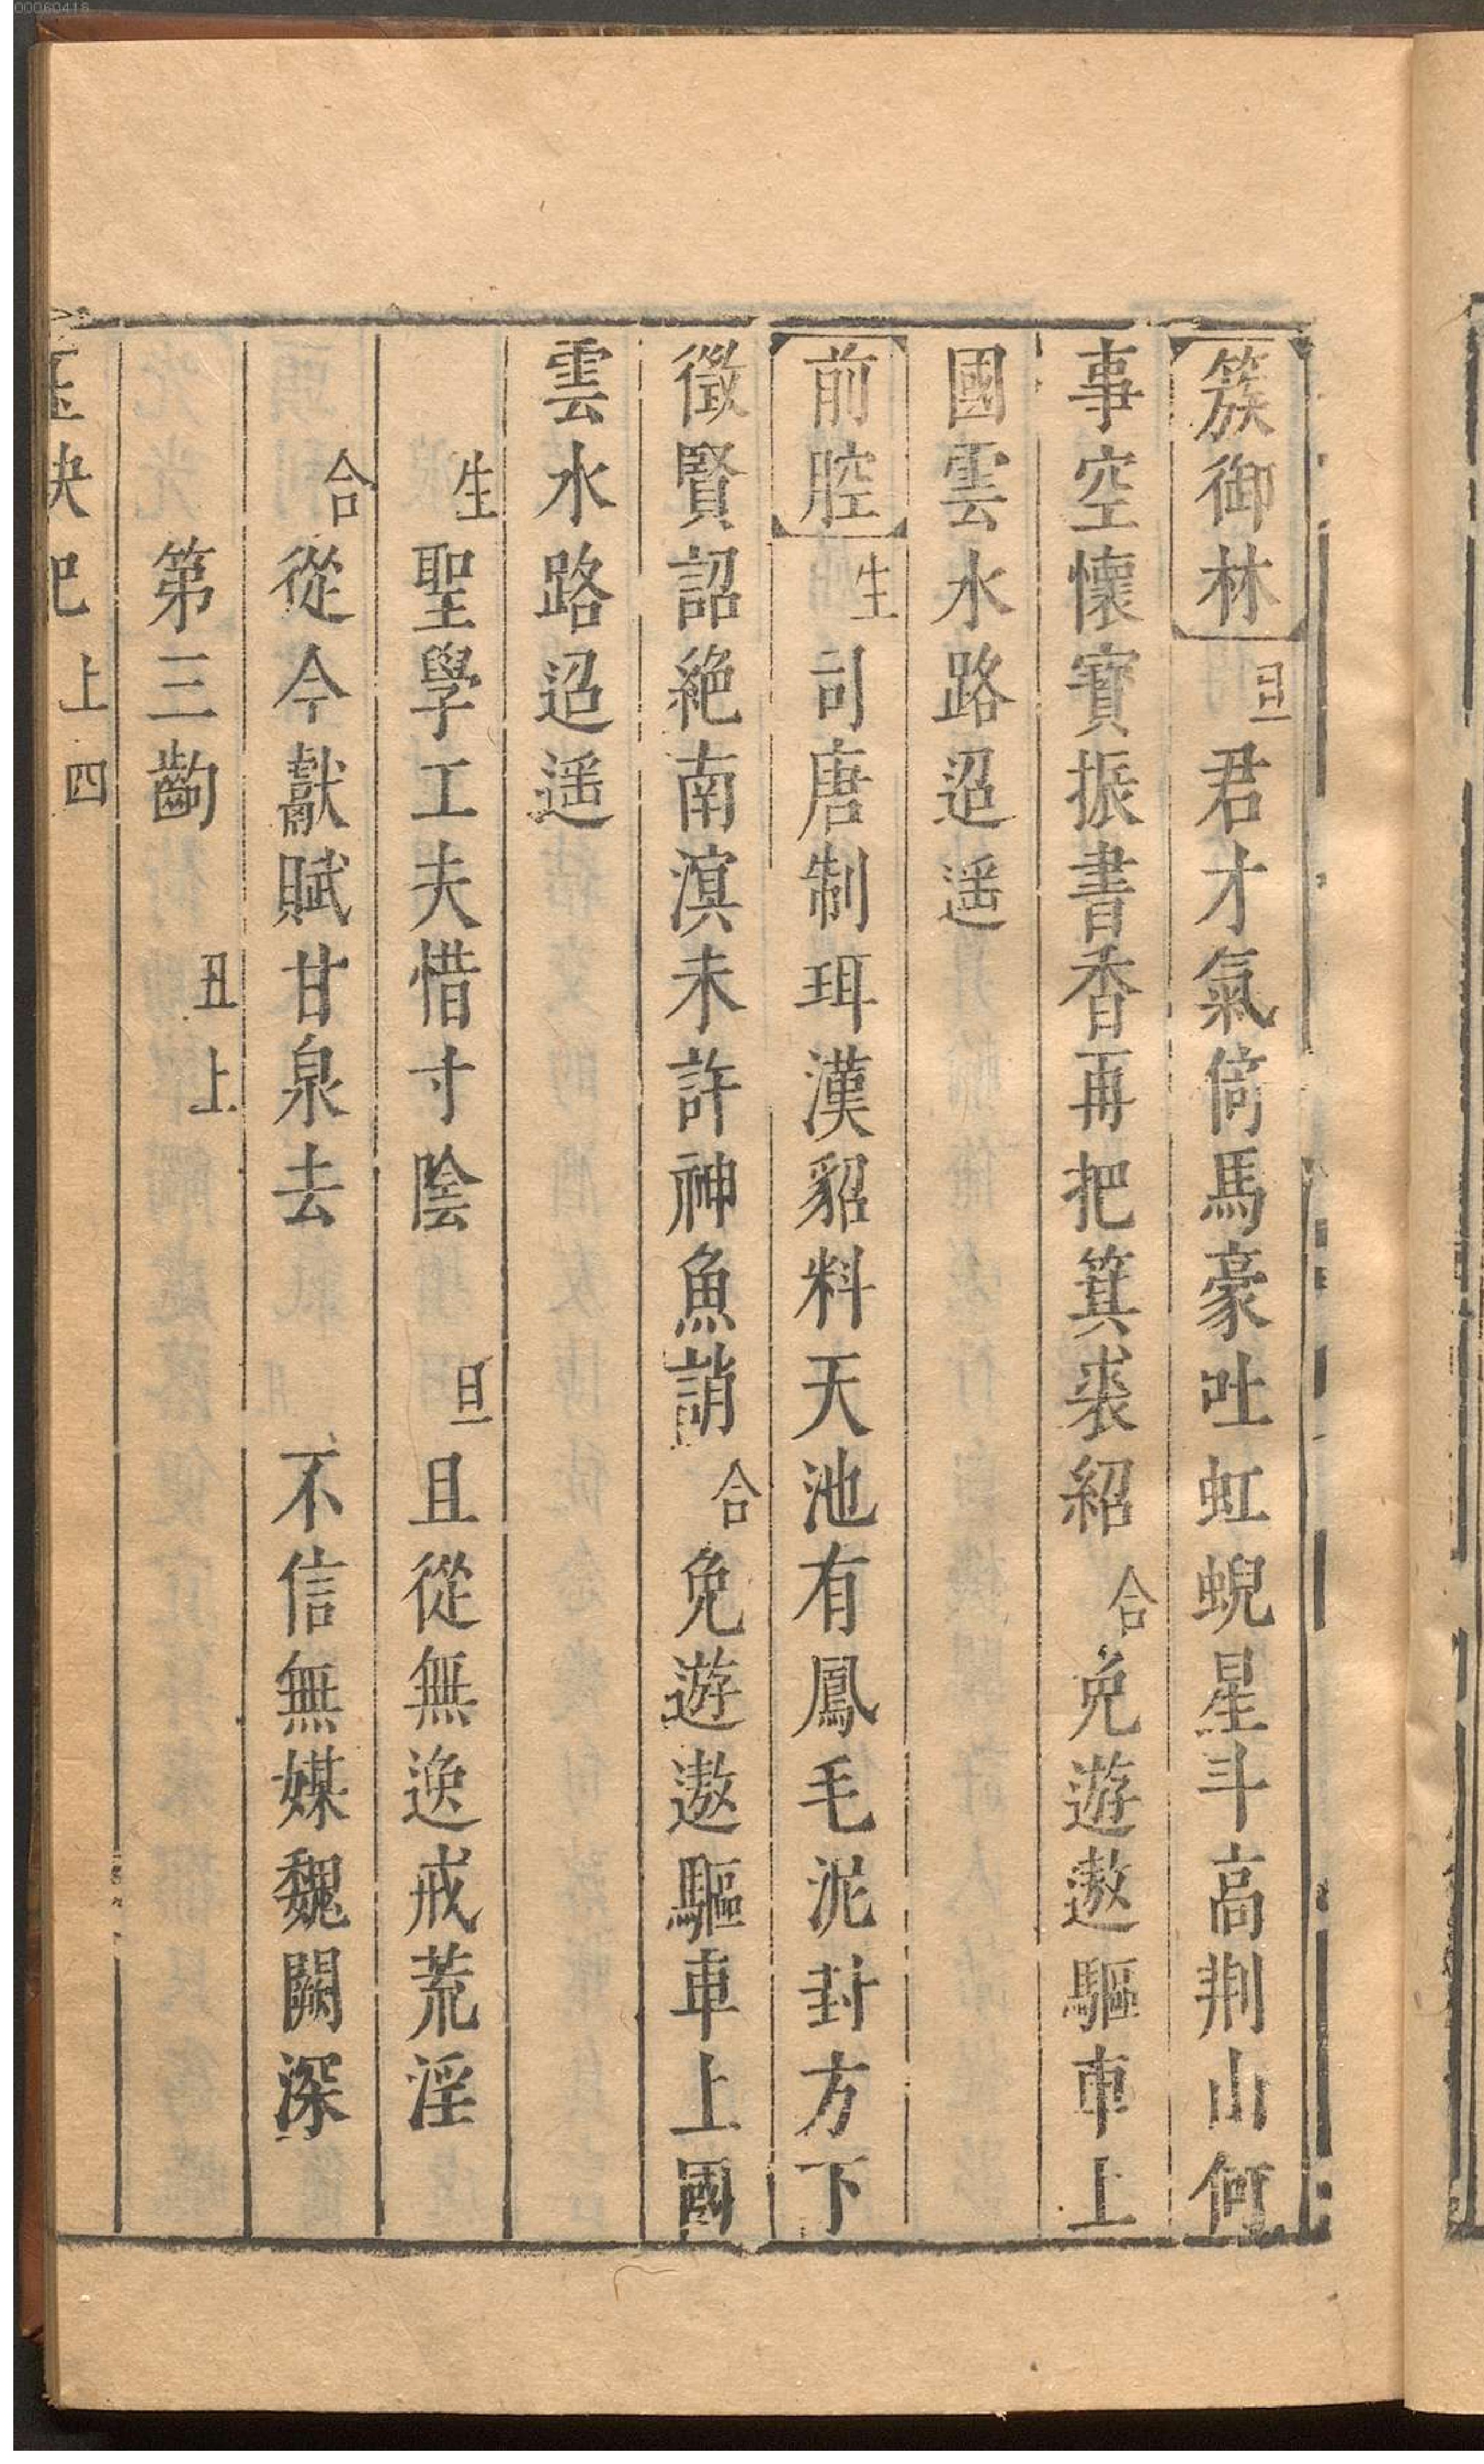 簇御林 旦 君才氣倚馬豪吐虹蜺星斗高荆山何
事空懷寶振書香再把箕裘紹 合 免遊遨驅車上
國雲水路迢遥
前腔 生 司唐制珥漢貂料天池有鳳毛泥封方下
徵賢詔絶南溟未許神魚誚 合 免遊遨驅車上國
雲水路迢遥
生 聖學工夫惜寸陰 旦 且從無逸戒荒淫
合 從今獻賦甘泉去 不信無媒魏闕深
第三齣 丑上
玉玦記 上 四
00060418